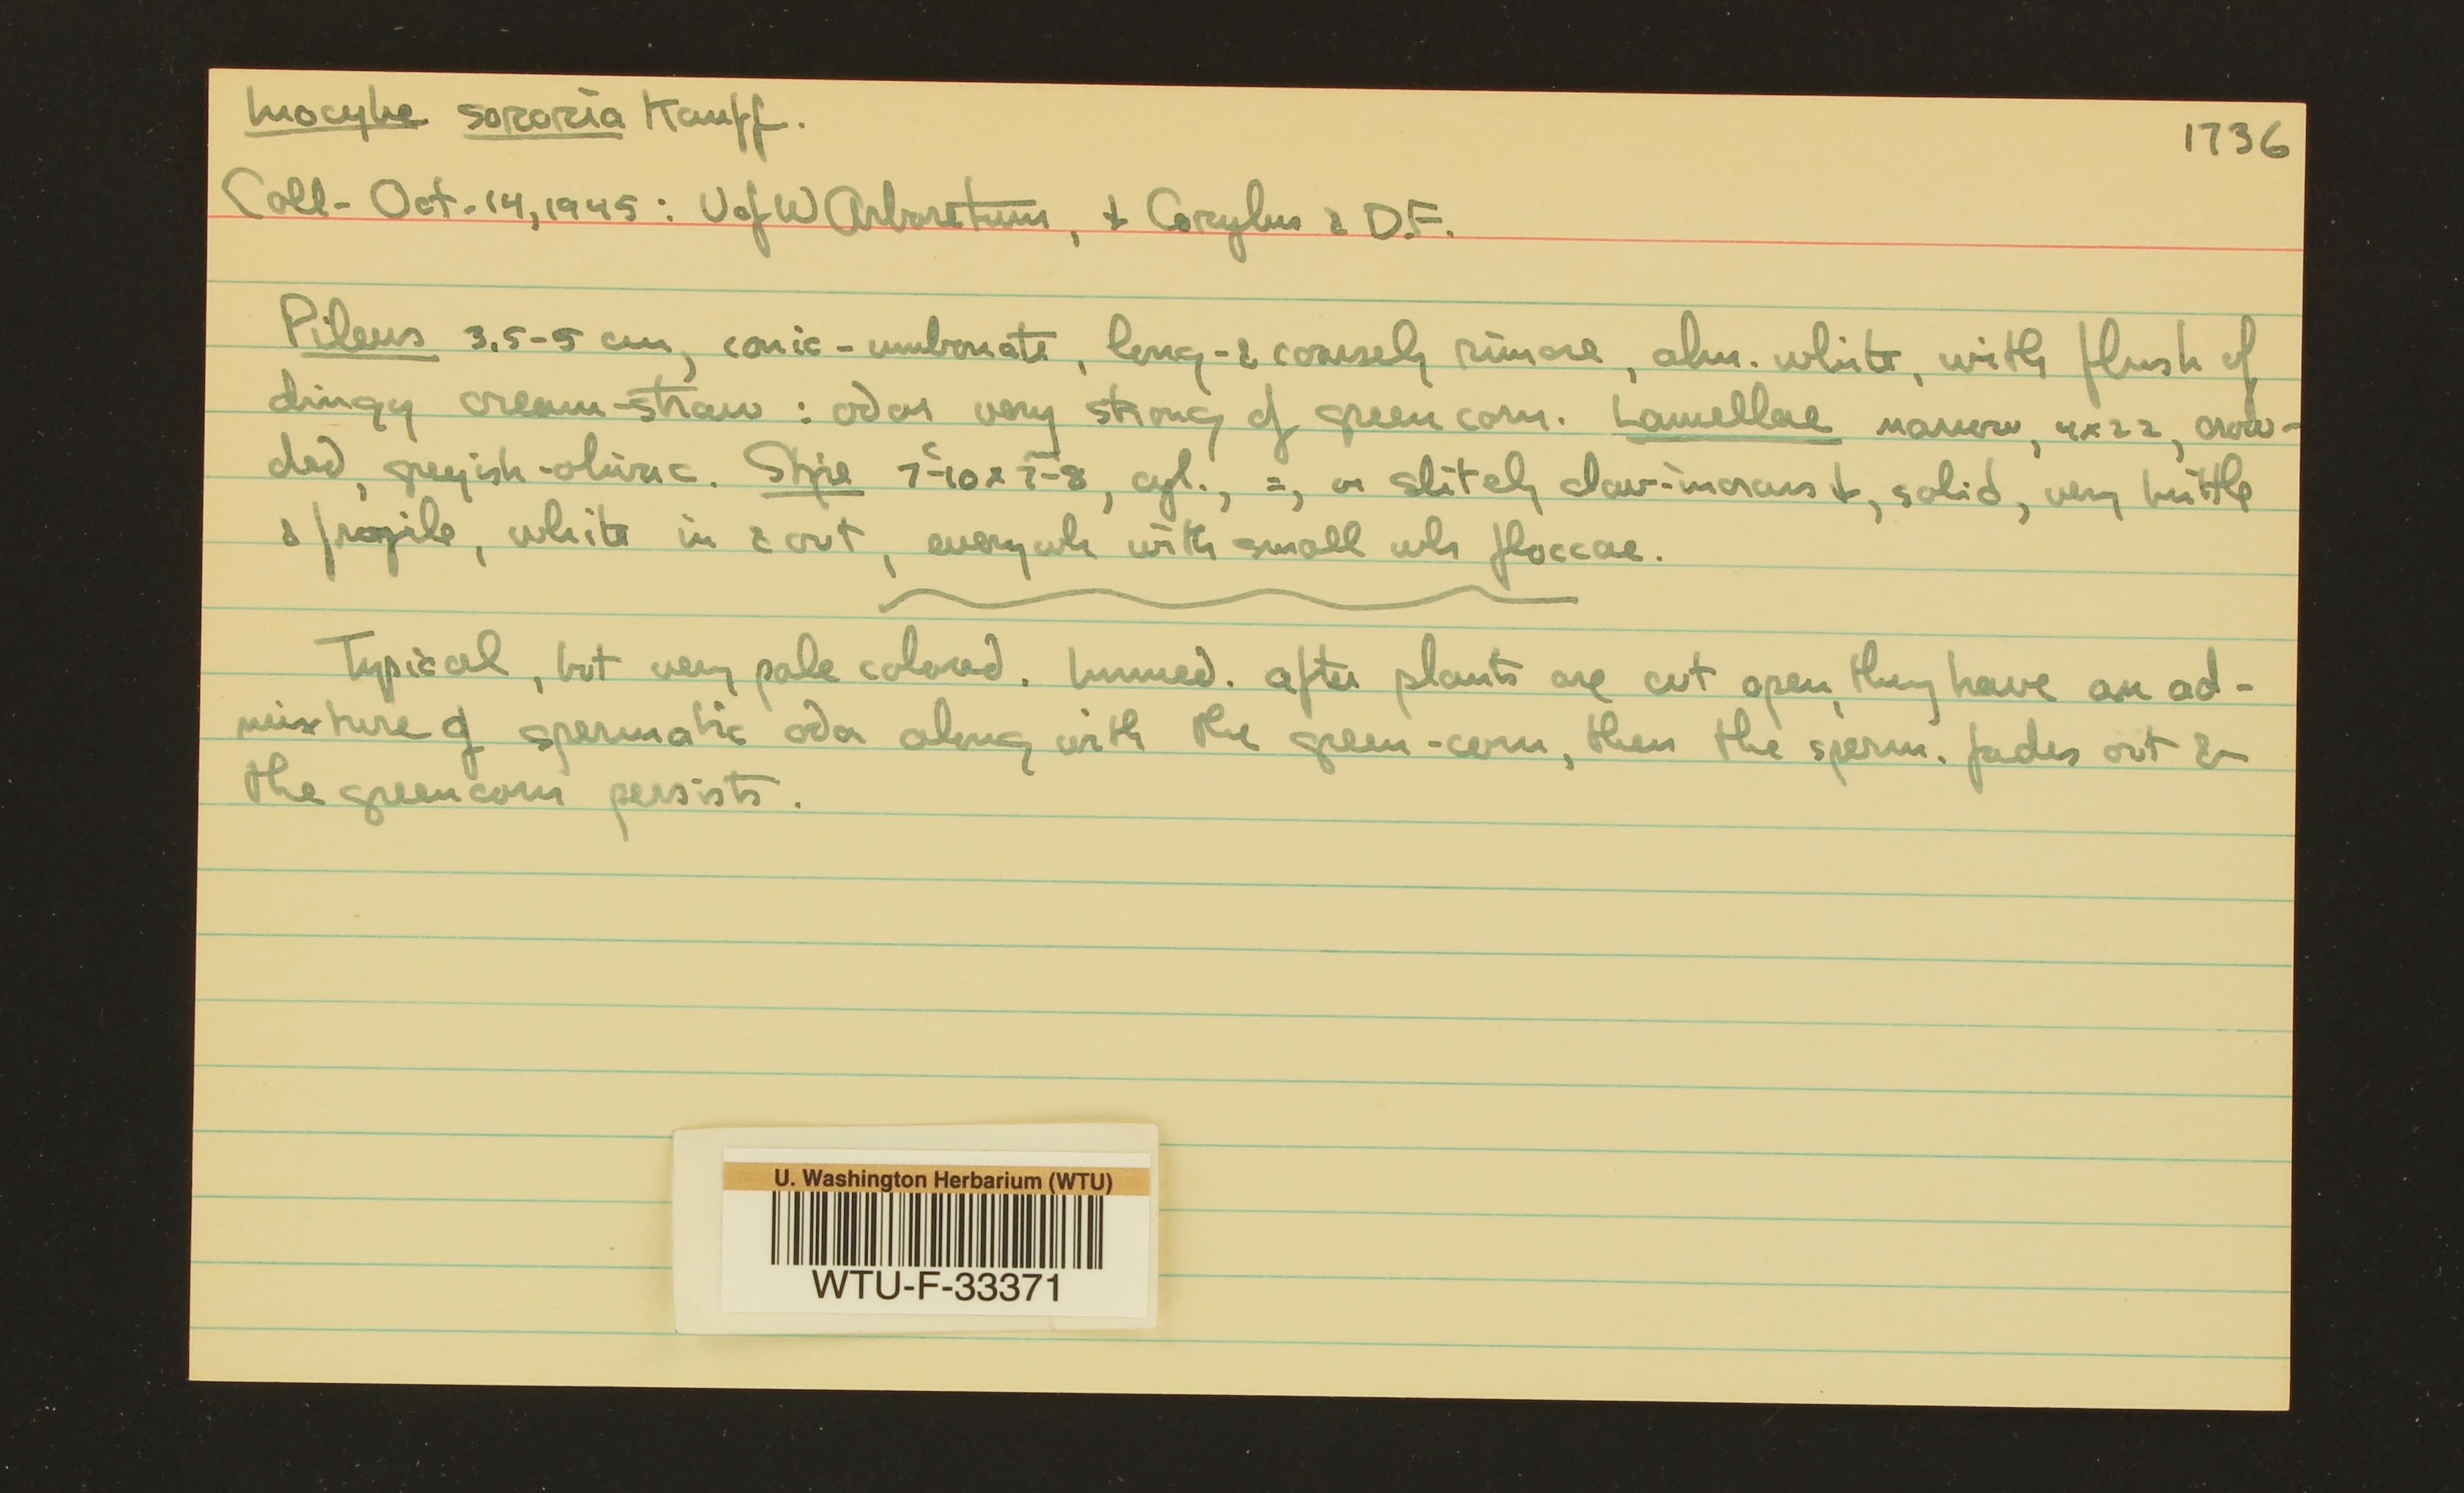 Inocybe sororia Kauff.
1736
Coll- Oct. 14, 1945: U of W Arboretum, ↓ Corylus & D.F.
Pileus 3.5-5 cm, conic-umbonate, long-& coarsely rimose, alm. white, with flush of
dingy cream-straw: odor very strong of green corn. Lamellae narrow, 4x22, crow-
ded, greyish-olivac. Stipe 7-10x7-8, cyl., =, or slitely clav-incrass ↓, solid, very brittle
& fragile, white in & out, everywh with small wh floccae.
Typical, but very pale colored. Immed. after plants are cut open, they have an ad-
mixture of spermatic odor along with the green-corn, then the sperm. fades out &
the green corn persists.
U. Washington Herbarium (WTU)
WTU-F-33371